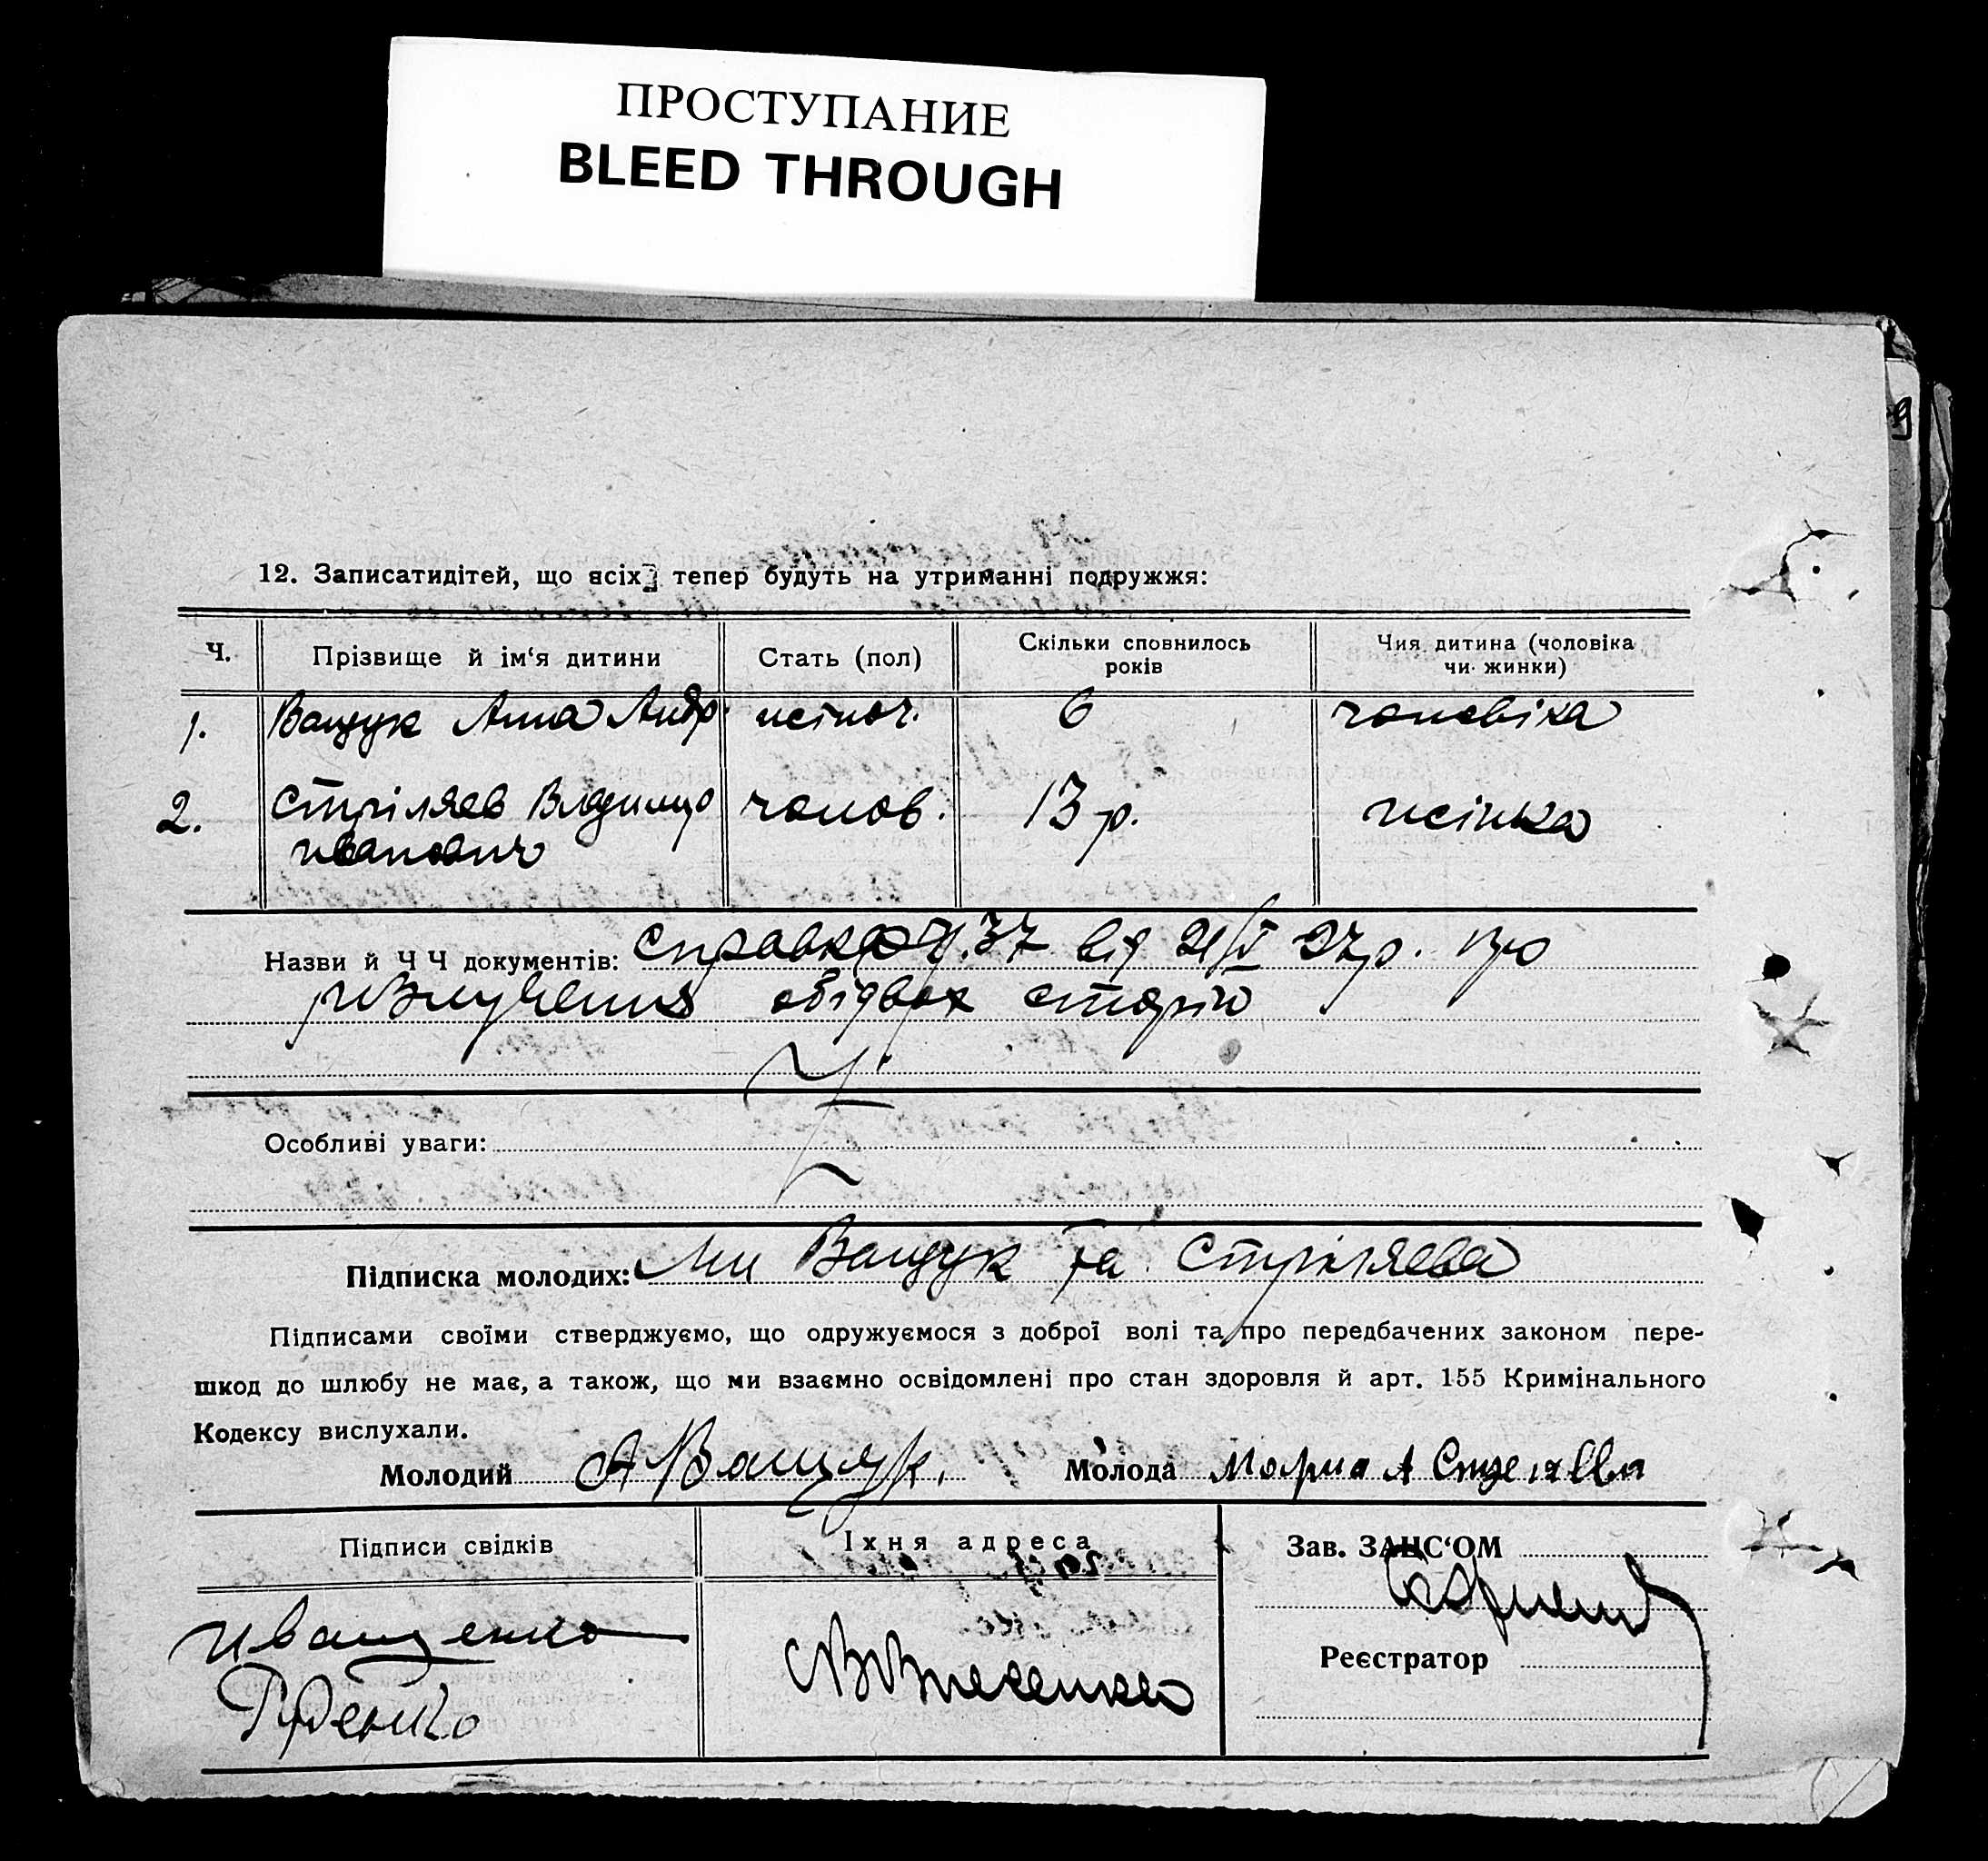 ПРОСТУПАНИЕ
BLEED THROUGH
9
12. Записатидітей, що всіх тепер будуть на утриманні подружжя:
Ч. Прізвище й ім‘я дитини Стать (пол) Скільки сповнилось років Чия дитина (чоловіка чи жинки)
1. Ващук Анна Андр. жіноч. 6 чоловіка
2. Стріляев Владимир чолов. 13 р. жінка
Иванович
Назви й ЧЧ документів: Справка ч. 37 від 21/V 27р. про
розлучення обідвох сторін
Особливі уваги:
Підписка молодих: Ми Ващук та Стріляева
Підписами своїми стверджуємо, що одружуємося з доброї волі та про передбачених законом пере-
шкод до шлюбу не має, а також, що ми взаємно освідомлені про стан здоровля й арт. 155 Кримінального
Кодексу вислухали.
Молодий АВащук. Молода Мариа А
Підписи свідків Їхня адреса Зав. ЗАЦС‘ОМ
Иващенко
Реєстратор